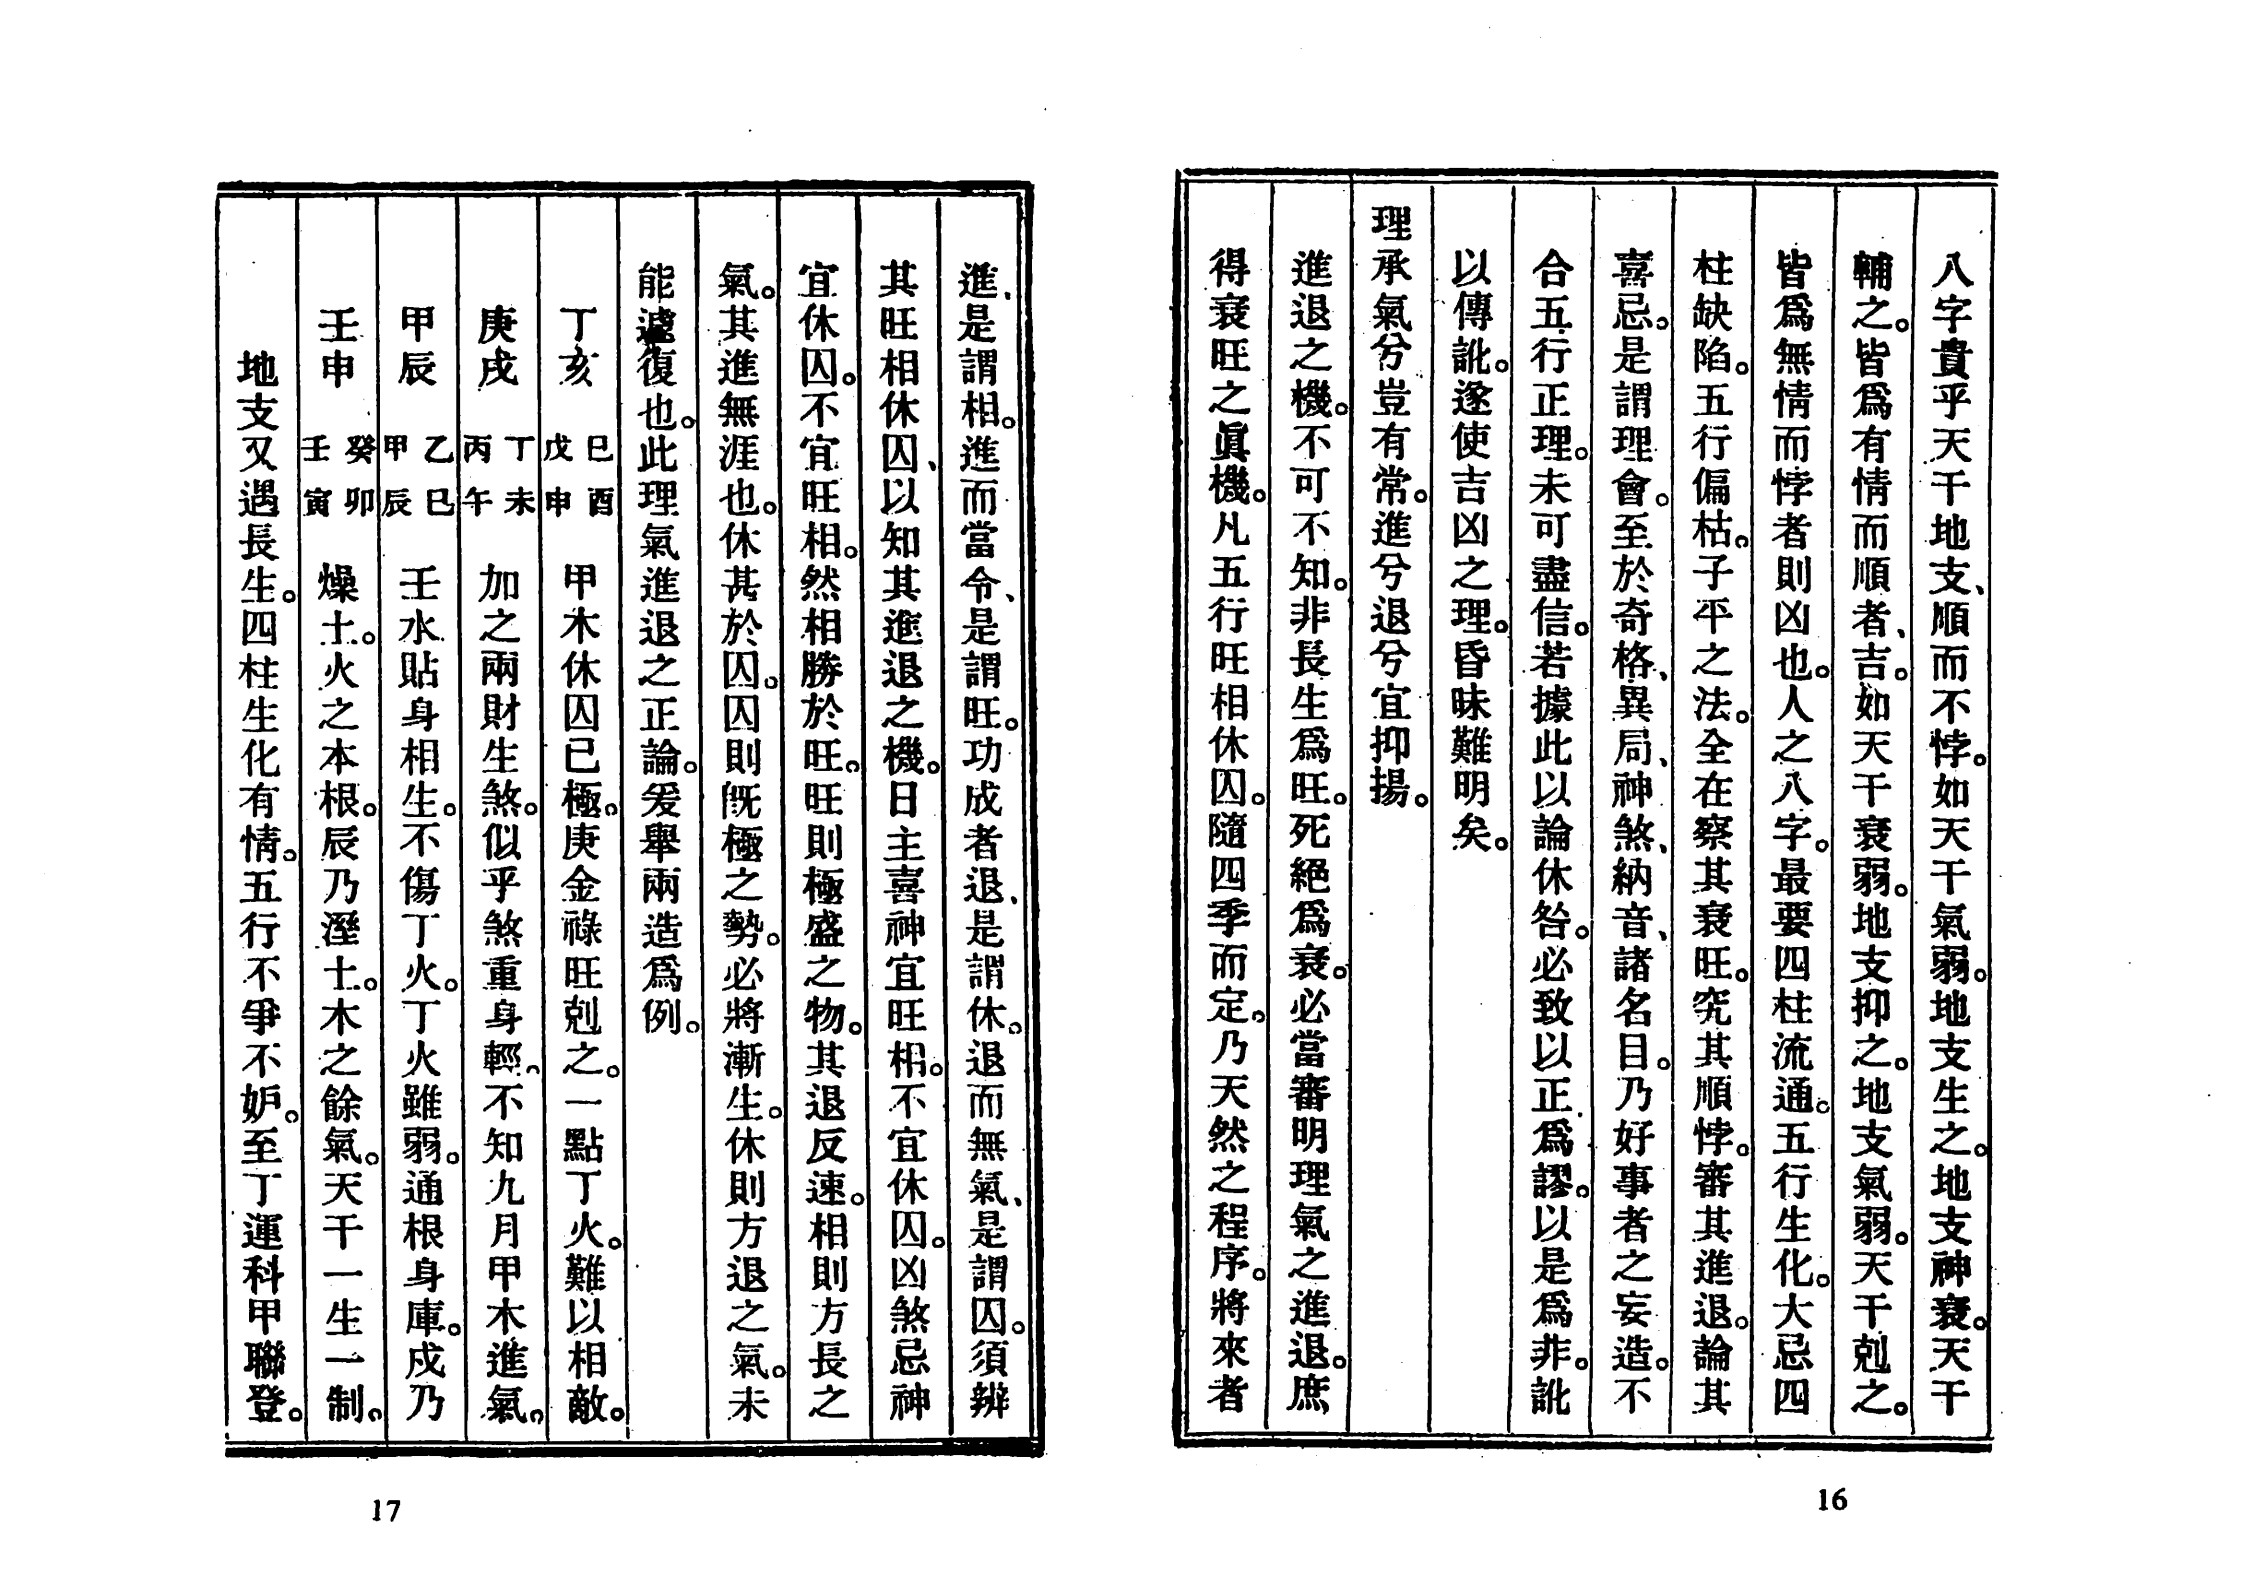 八字貴乎天干地支、順而不悖。如天干氣弱。地支生之。地支神衰。天干
輔之。皆爲有情而順者、吉。如天干衰弱。地支抑之。地支氣弱。天干剋之。
皆爲無情而悖者則凶也。人之八字。最要四柱流通。五行生化。大忌四
柱缺陷。五行偏枯。子平之法。全在察其衰旺。究其順悖。審其進退。論其
喜忌。是謂理會。至於奇格、異局、神煞、納音、諸名目。乃好事者之妄造。不
合五行正理。未可盡信。若據此以論休咎。必致以正爲謬。以是爲非。訛
以傳訛。遂使吉凶之理。昏昧難明矣。
理承氣兮豈有常。進兮退兮宜抑揚。
進退之機。不可不知。非長生爲旺。死絕爲衰。必當審明理氣之進退。庶
得衰旺之眞機。凡五行旺相休囚。隨四季而定。乃天然之程序。將來者
16
進、是謂相。進而當令、是謂旺。功成者退、是謂休。退而無氣、是謂囚。須辨
其旺相休囚、以知其進退之機。日主喜神宜旺相。不宜休囚。凶煞忌神
宜休囚。不宜旺相。然相勝於旺。旺則極盛之物。其退反速。相則方長之
氣。其進無涯也。休甚於囚。囚則旣極之勢。必將漸生。休則方退之氣。未
能遽復也。此理氣進退之正論。爰舉兩造爲例。
丁亥 己酉 戊申 甲木休囚已極。庚金祿旺剋之。一點丁火。難以相敵。
庚戌 丁未 丙午 加之兩財生煞。似乎煞重身輕。不知九月甲木進氣。
甲辰 乙巳 甲辰 壬水貼身相生。不傷丁火。丁火雖弱。通根身庫。戌乃
壬申 癸卯 壬寅 燥土。火之本根。辰乃溼土。木之餘氣。天干一生一制。
地支又遇長生。四柱生化有情。五行不爭不妒。至丁運科甲聯登。
17